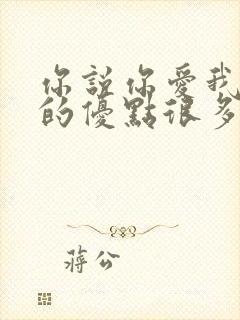 你說你愛我
的優點很多
蔣公